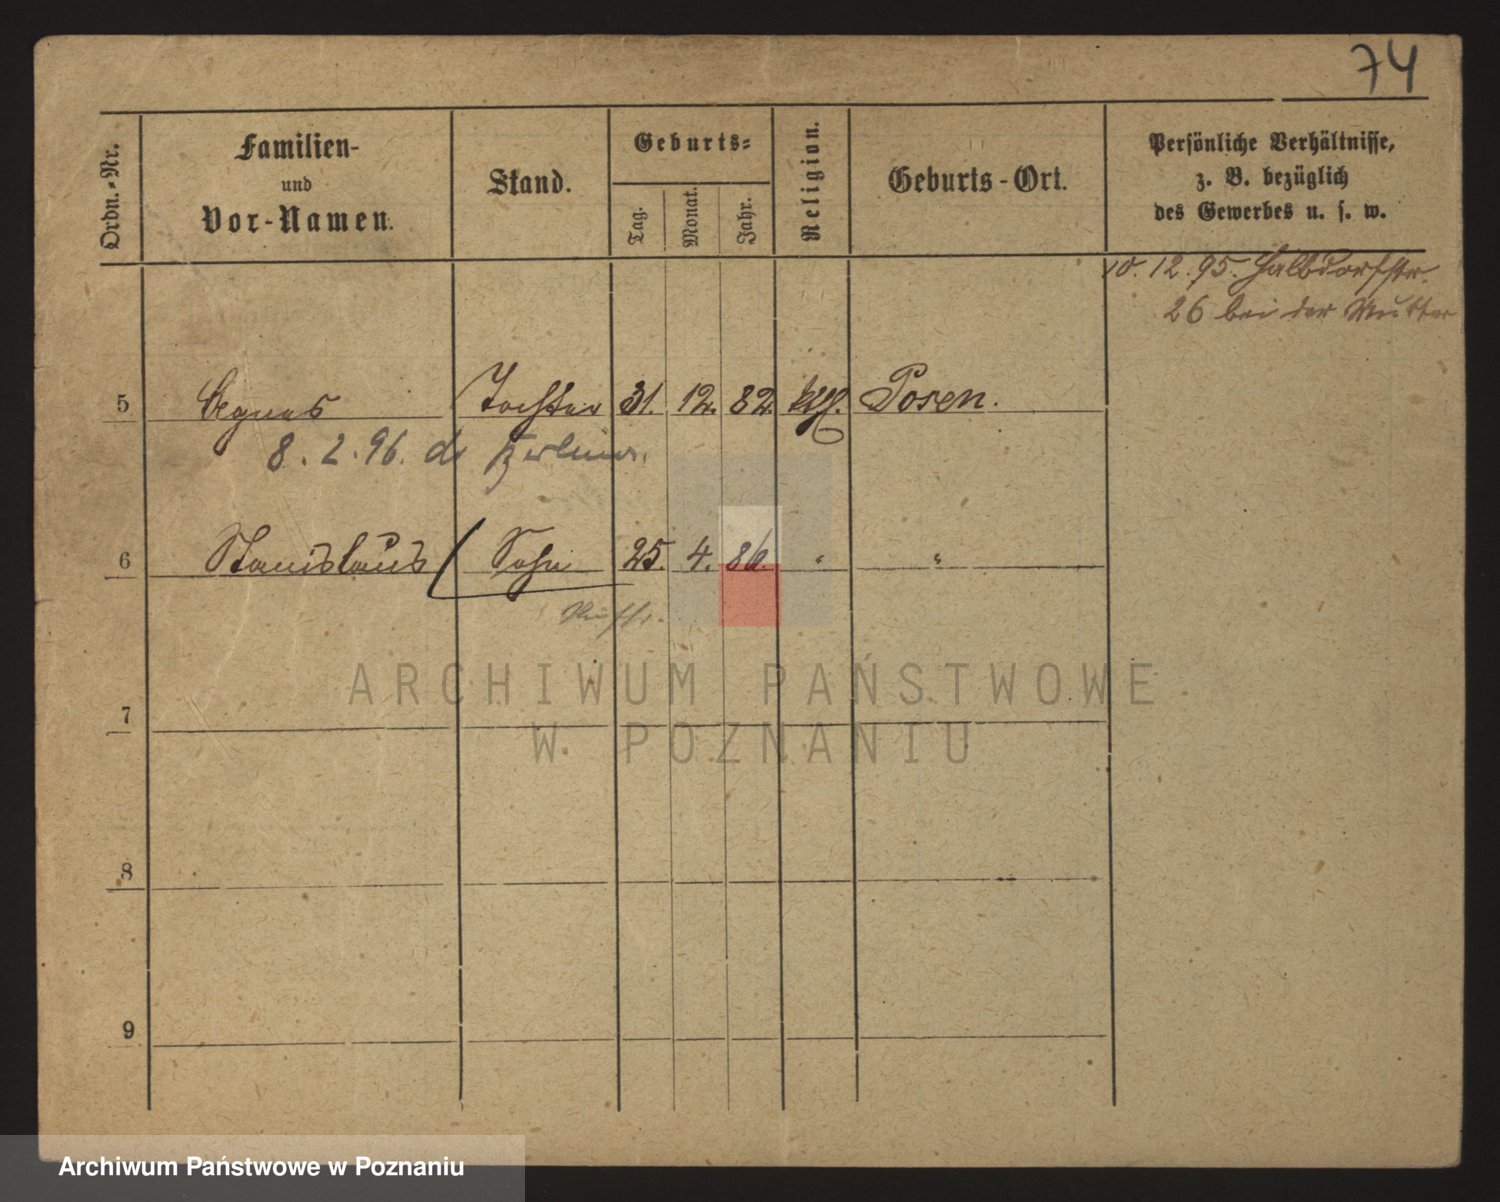 74
Ordn.-Nr.
Familien-
und
Vor-Namen.
Stand.
Geburts-
Tag.
Monat.
Jahr.
Religion.
Geburts-Ort.
Persönliche Verhältnisse,
z. B. bezüglich
des Gewerbes u. s. w.
10. 12. 95. Halbdorfstr.
26 bei der Mutter
5 Agnes Tochter 31. 12. 82. kth. Posen.
8. 2. 96.
6 Stanislaus Sohn 25. 4. 86. " "
7
ARCHIWUM PAŃSTWOWE
W POZNANIU
8
9
Archiwum Państwowe w Poznaniu